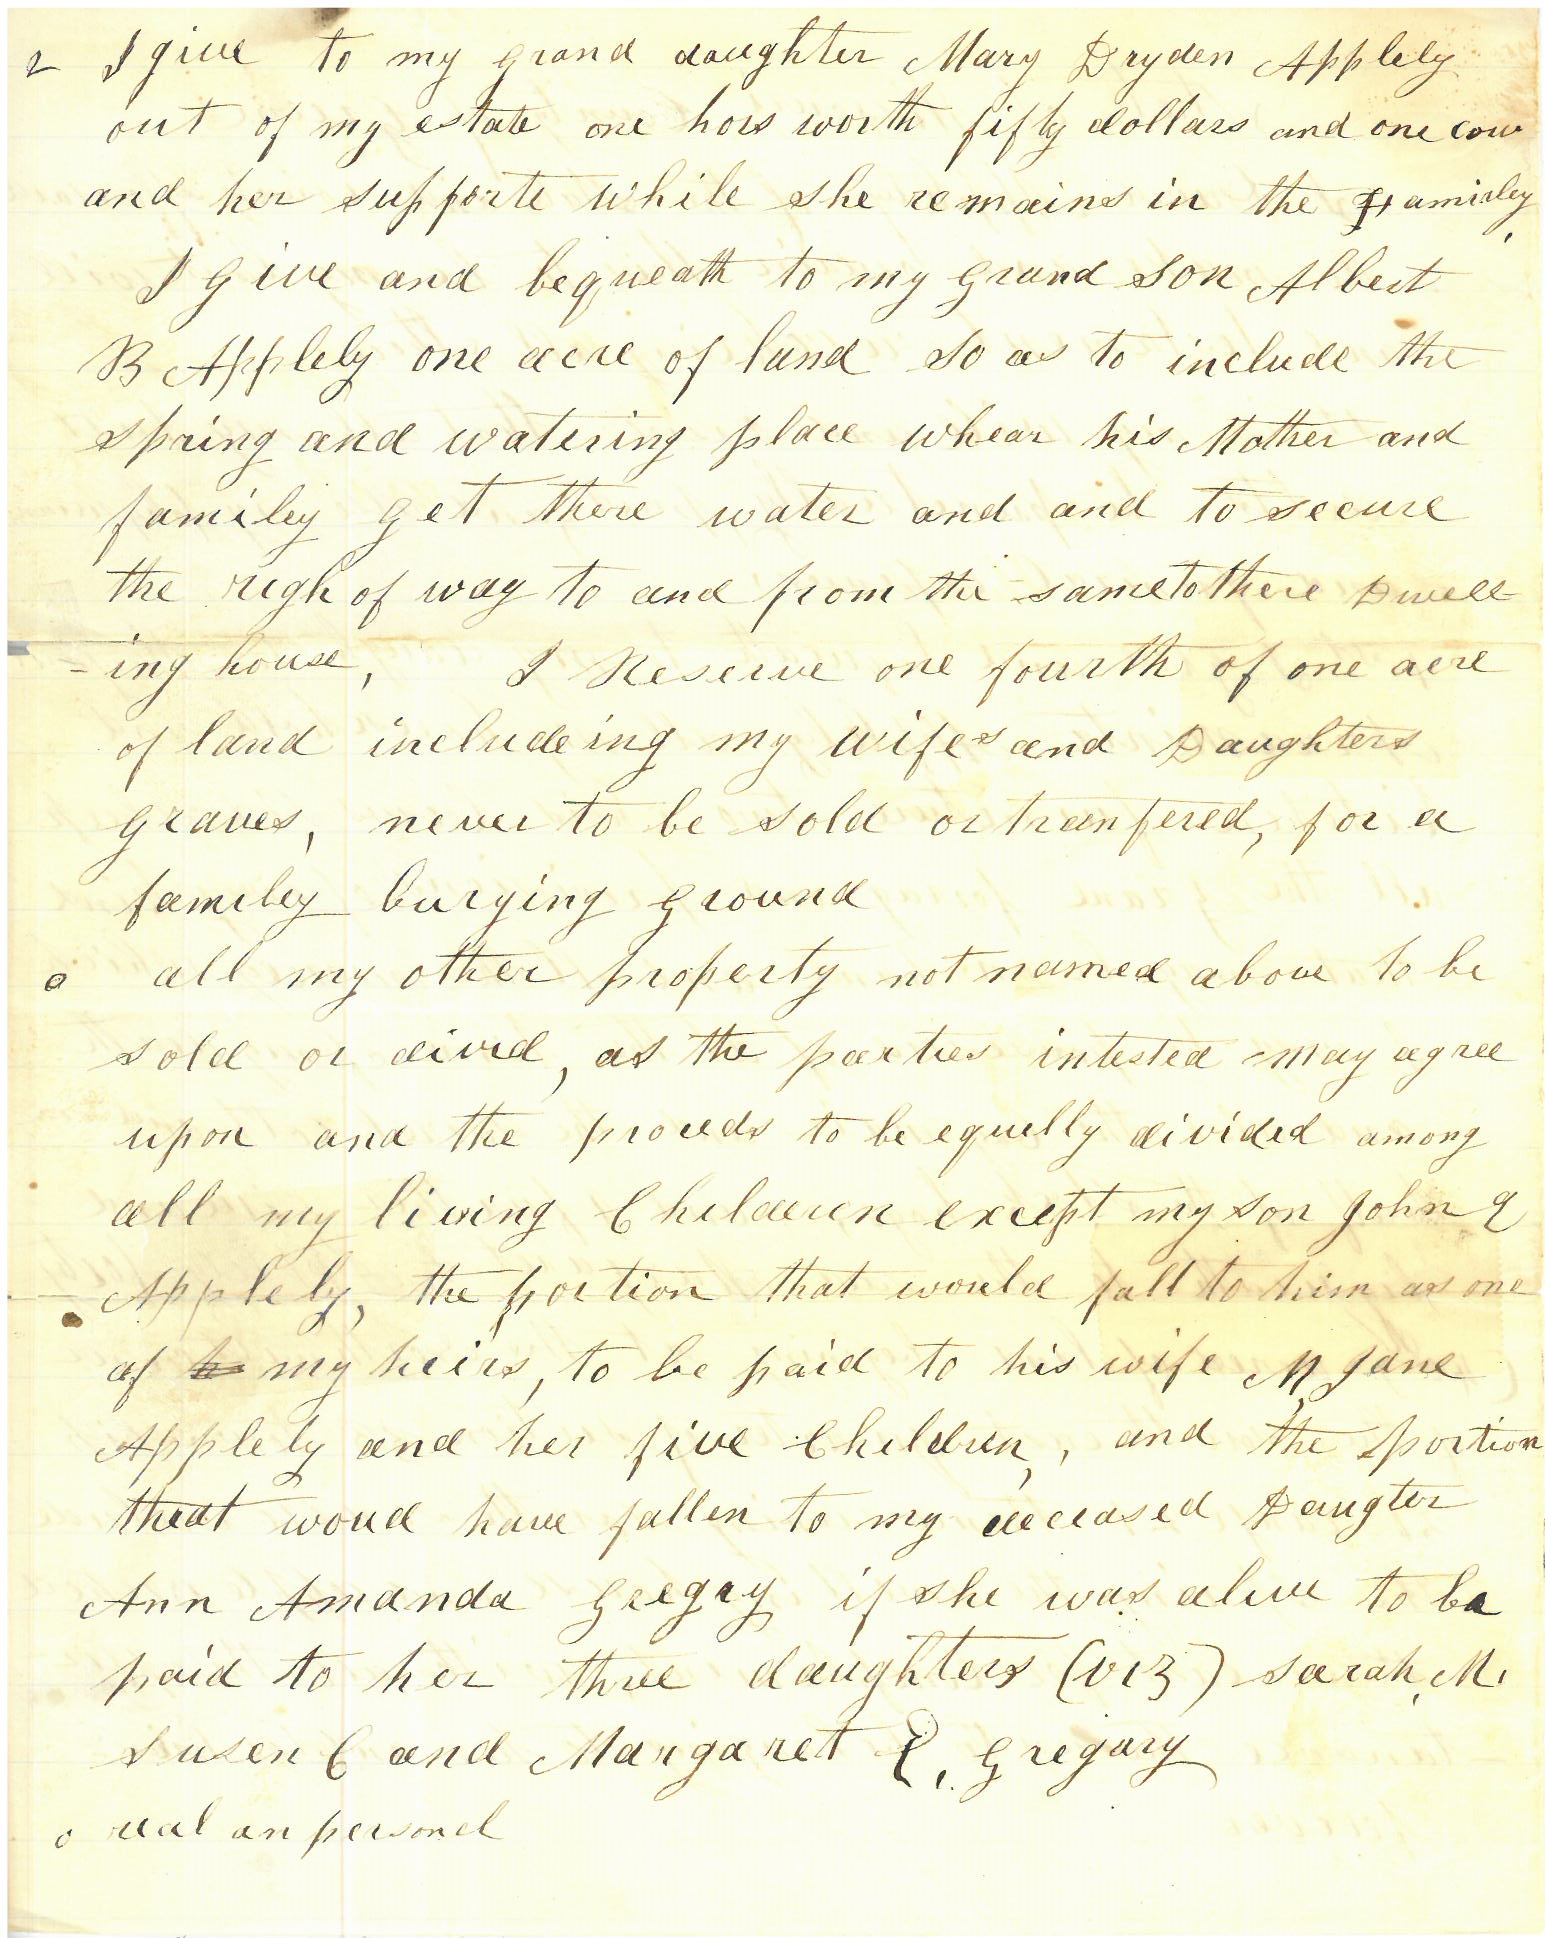 2 I give to my grand daughter Mary Dryden Applely
out of my estate one hors worth fifty dollars and one cow
and her supporte while she remains in the familey,
I give and bequeath to my grand son Albert
B Applely one acre of land so as to include the
spring and watering place whear his Mother and
familey get there water and and to secure
the righ of way to and from the same to there Dwell-
-ing house, I Reserve one fourth of one acre
of land includeing my wifes and Daughters
graves, never to be sold or tranfered, for a
familey burying ground
o all my other property not named above to be
sold or divid, as the parties intested may agree
upon and the proceds to be equelly divided among
all my living Children except my son John Q
Applely, the portion that would fall to him as one
of my heirs, to be paid to his wife M, Jane
Applely and her five Children, , and the portion
that woud have fallen to my deceased Daugter
Ann Amanda Gregry if she was alive to be
paid to her three daughters (viz) Sarah, M,
Susen C and Margaret E, Gregary
o real an personel